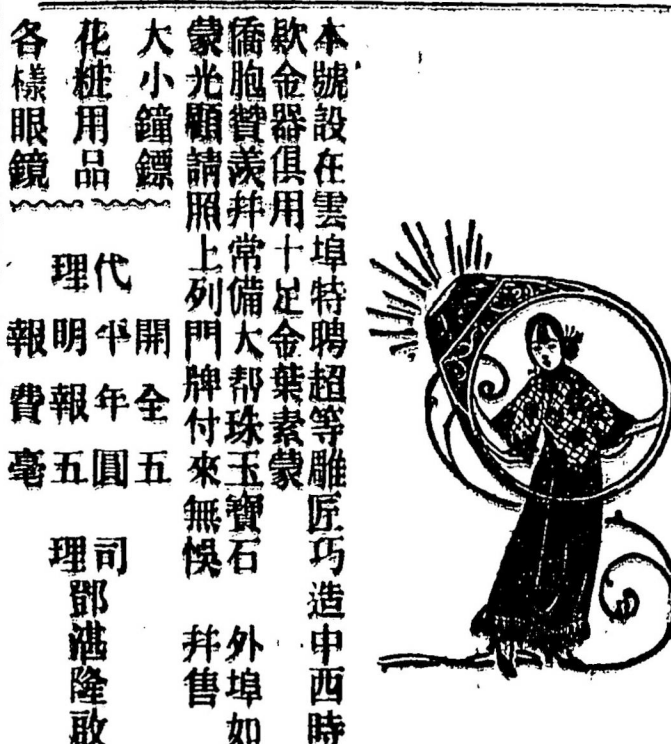 本號設在雲埠特聘超等雕匠巧造中西時
欵金器俱用十足金葉素蒙
僑胞贊羨幷常備大帮珠玉寶石 外埠如
蒙光顧請照上列門牌付來無悞 幷售
大小鐘鏢
花粧用品
各樣眼鏡
代理
開平明報
全年報費
五圓五毫
司理鄧湛隆啟